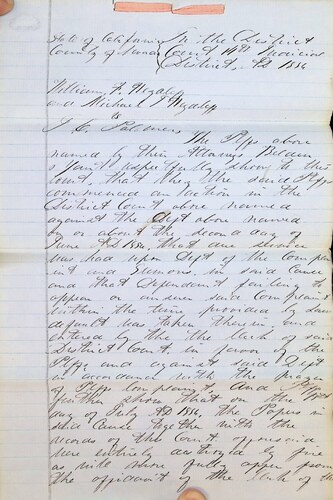 State of California In the District
County of Nevada Court 14th Judicial
District, AD 1856
William F.
and Michael
vs
J. C. Palmer
The Plffs above
named by their Attorneys
respectfully show to this
court, that they the said Plffs
commenced an action in the
District Court above named
against the Deft above named
on or about the second day of
June AD 1856, that due service
was had upon Deft of the Compla
int and Summons in said Cause
and that Defendant failing to
appear or answer said Complaint
within the time provided by law
default was taken therein and
entered by the Clerk of said
District Court, in favor of the
Plffs and against said Deft
in accordance with the prayer
of Plffs complaint, And Plffs
further show that on the
day of July AD 1856, the Papers in
said Cause together with the
records of the Court aforesaid
were entirely destroyed by fire
as will more fully appear from
the affidavit of the Clerk of